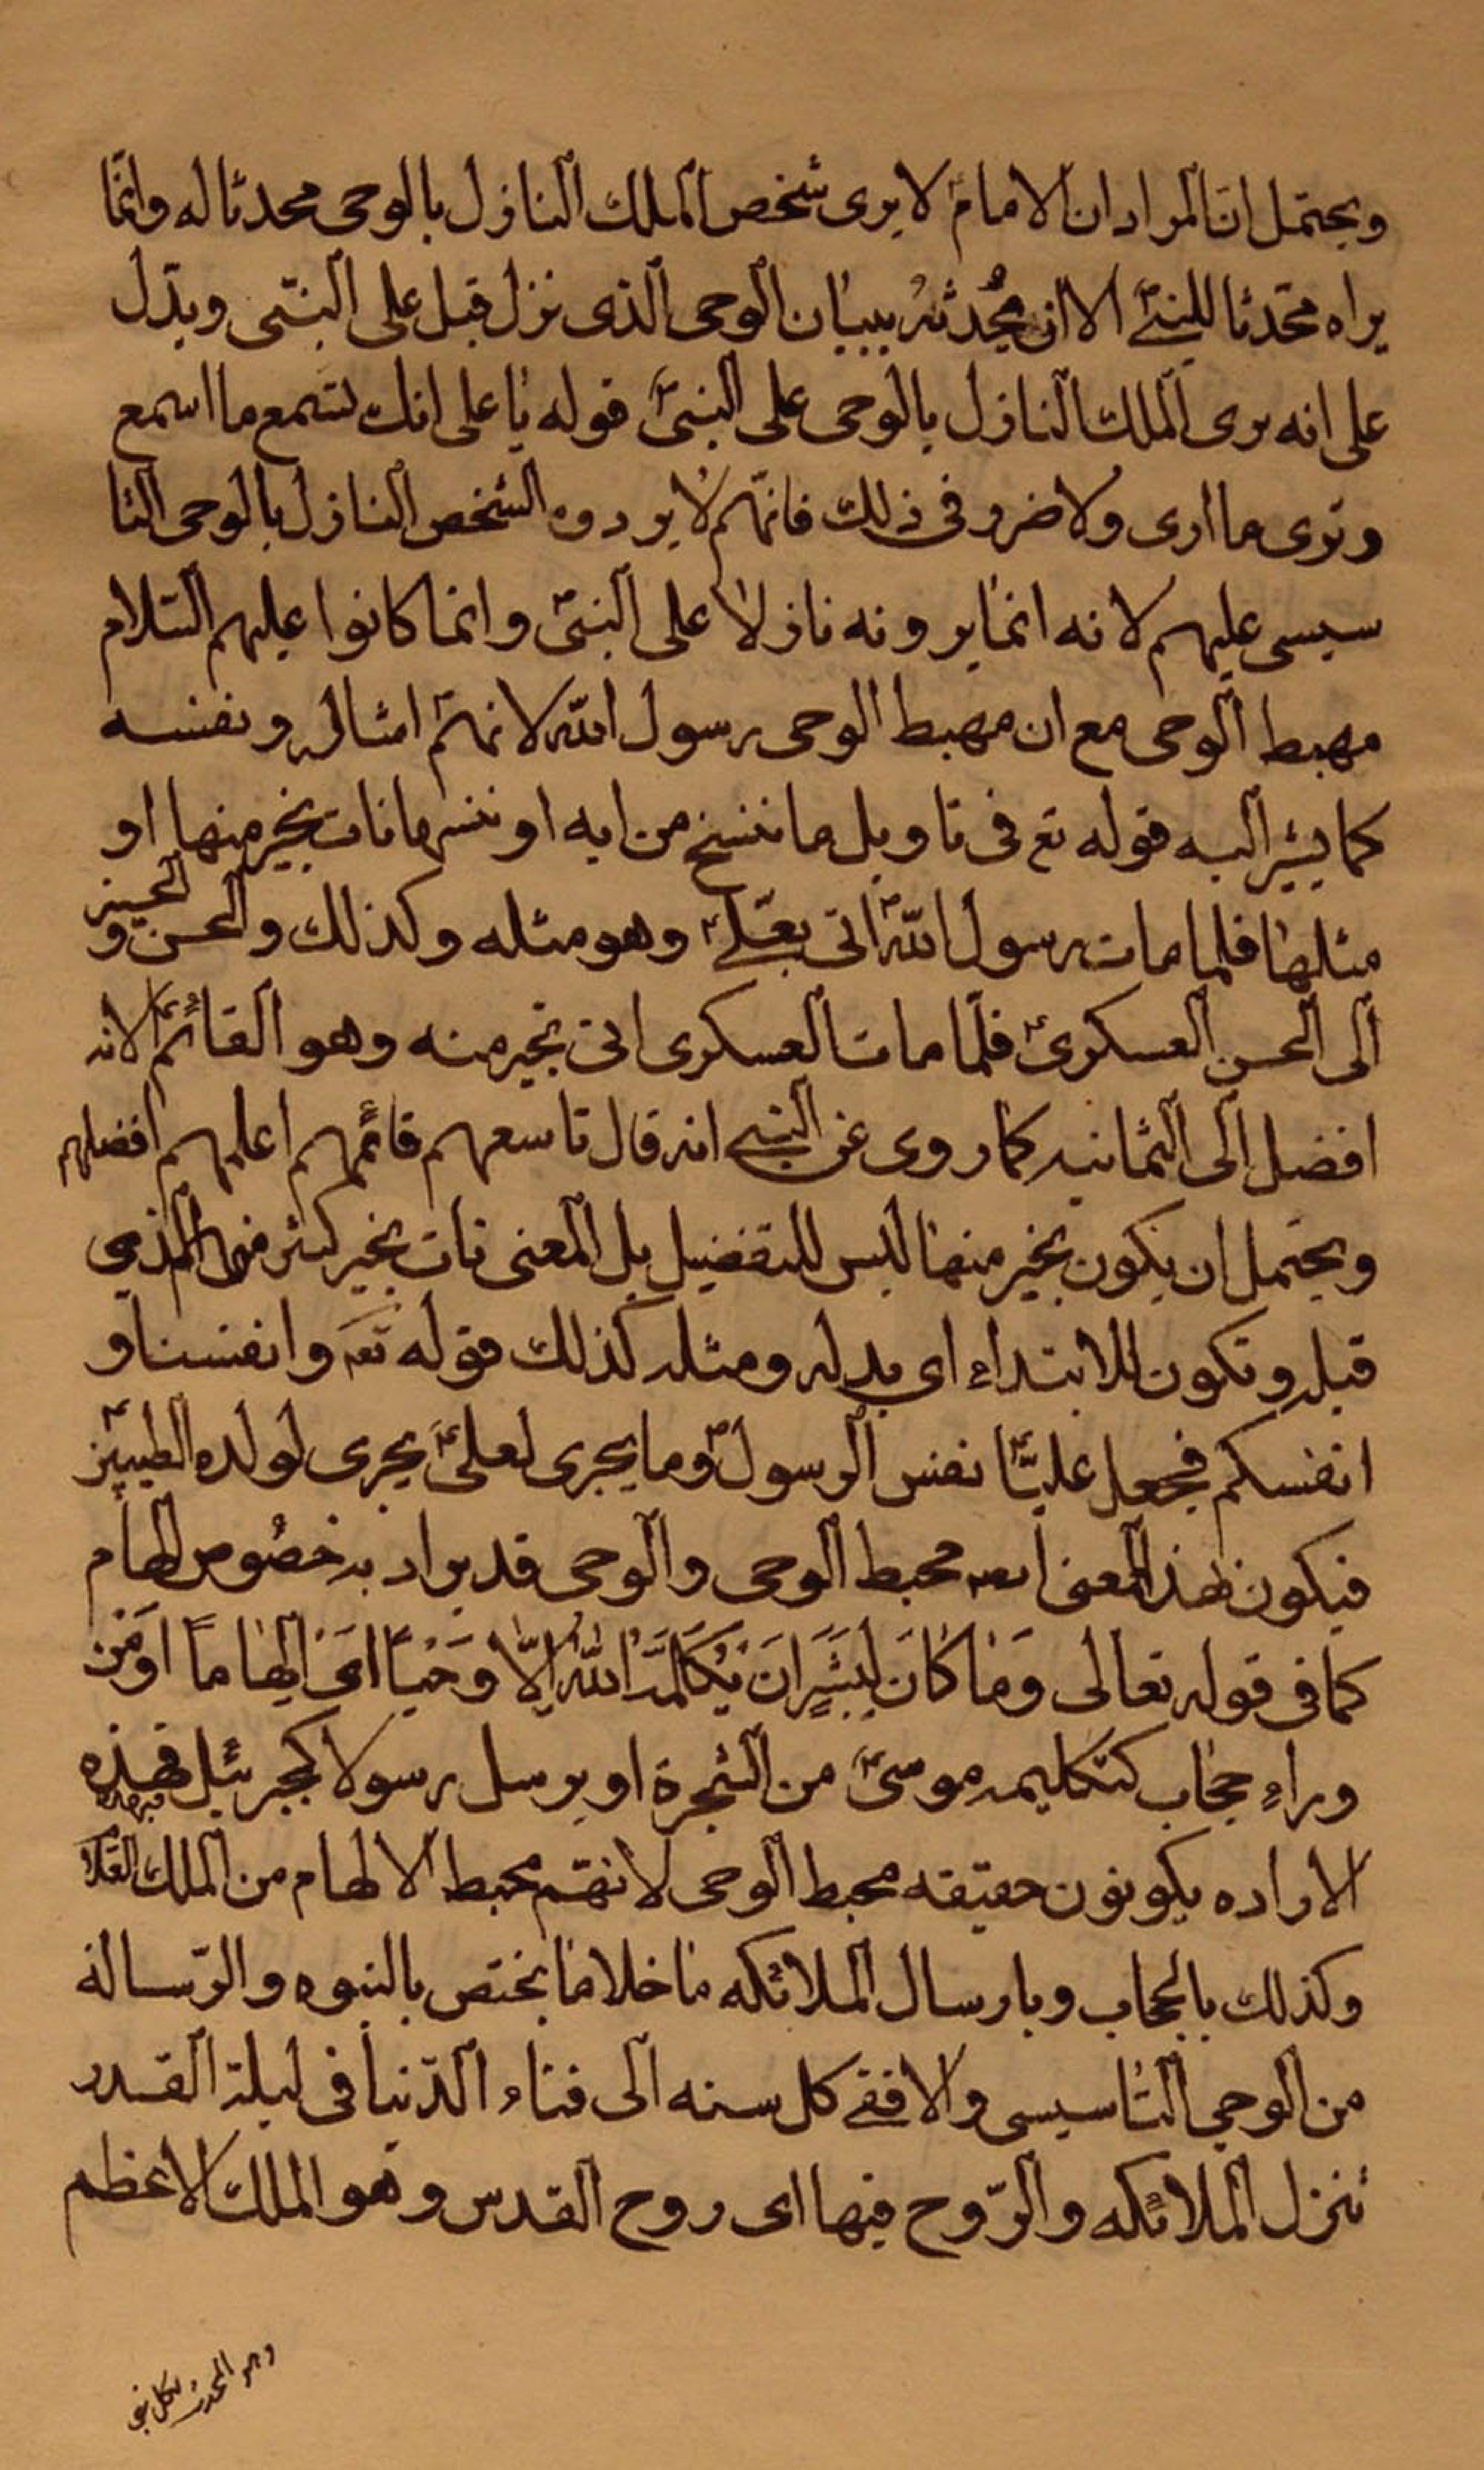 ويحتمل ان المراد ان الامام لا يرى شخص الملك النازل بالوحى محدثا له وانما
يراه محدثا للنبي الا ان يحدثه ببيان الوحى الذى نزل قبل على النبى ويدل
على انه يرى الملك النازل بالوحى على النبى قوله يا على انك تسمع ما اسمع
وترى ما ارى ولا ضرر فى ذلك فانهم لا يرون الشخص النازل بالوحى التا
سيسى عليهم لانه انما يرونه نازلا على النبى وانما كانوا عليهم السلام
مهبط الوحى مع ان مهبط الوحى رسول الله لانهم امثاله ونفسه
كما يشير اليه قوله تع فى تاويل ما ننسخ من ايه او ننسها نات بخير منها او
مثلها فلما مات رسول الله اتى بعلي وهو مثله وكذلك والحسن و الحسين
الى الحسن العسكرى فلما مات العسكرى اتى بخير منه وهو القائم لانه
افضل الى الثمانيه كما روى عن النبي انه قال تاسعهم قائمهم اعلمهم افضلهم
ويحتمل ان يكون بخير منها ليس للتفضيل بل المعنى نات بخير كثير من الذي
قبله وتكون للابتداء اي بدله ومثله كذلك قوله تع وانفسنا و
انفسكم فجعل عليا نفس الرسول وما يجرى لعلى يجرى لولده الطيبين
فيكون بهذا المعنى محبط الوحى والوحى قد يراد به خصوص الهام
كما فى قوله تعالى وَمَا كَانَ لِبَشَرٍ اَن يُكَلِّمَهُ اللهُ اِلّا وَحْيًا اى اِلهاما اَو مِن
وراءِ حجاب كتكليمه موسى من الشجرة او يرسل رسولا كجبرئيل فهذه
الاراده يكونون حقيقه محبط الوحى لانهم محبط الالهام من الملك العلا
وكذلك بالحجاب وبارسال الملائكه ما خلا ما يختص بالنبوه والرساله
من الوحي التاسيسى والا ففي كل سنه الى فناء الدنيا فى ليلة القدر
تنزل الملائكه والروح فيها اى روح القدس وهو الملك الاعظم
وهو المحدث لكل نبى